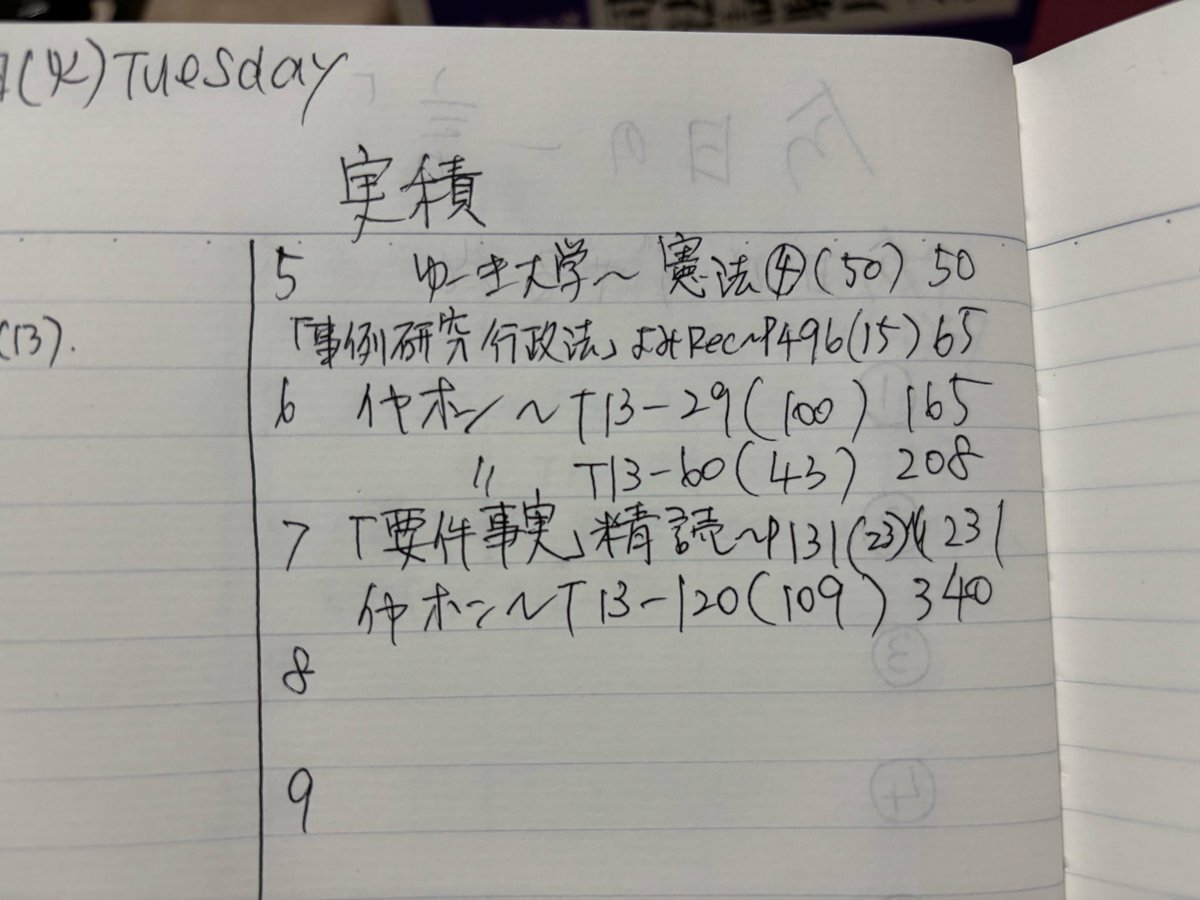 (火) Tuesday
実積
5 ゆーき大学〜 憲法④(50) 50
(13).
「事例研究 行政法」よみRec〜P496(15) 65
6 イヤホン 〜T13-29(100) 165
〃 T13-60(43) 208
7 「要件事実」精読〜P131(23) 231
イヤホン〜T13-120(109) 340
8
9